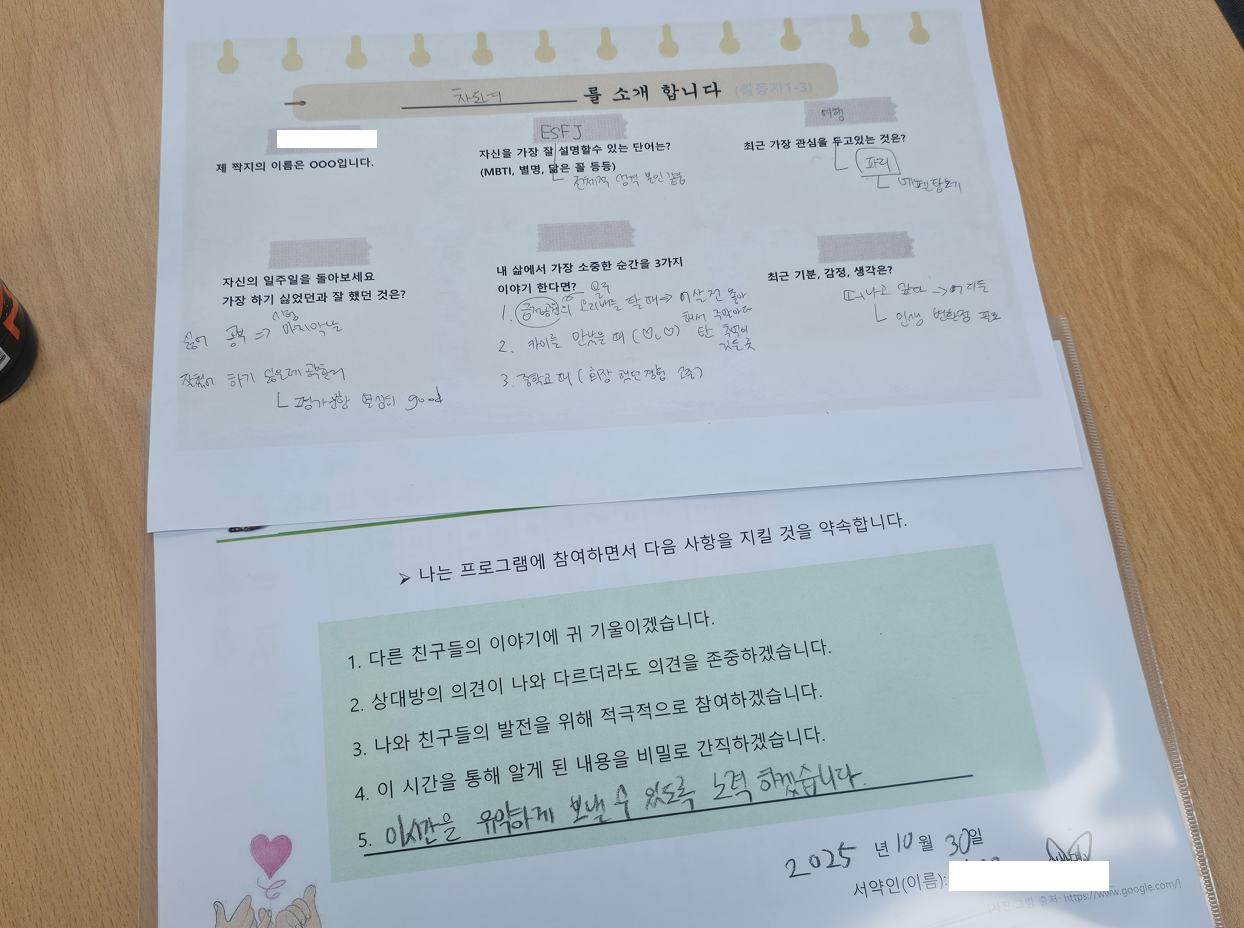 를 소개 합니다 (활동지1-3)
제 짝지의 이름은 OOO입니다.
ESFJ
자신을 가장 잘 설명할수 있는 단어는?
(MBTI, 별명, 닮은 꼴 등등)
성격 본인
여행
최근 가장 관심을 두고있는 것은?
파리
에펠탑보기
자신의 일주일을 돌아보세요
가장 하기 싫었던과 잘 했던 것은?
시험
싫어 공부 => 마지막날
하기 싫은데
good
내 삶에서 가장 소중한 순간을 3가지
이야기 한다면?
1. 오리배를 탈 때
2. 카이를 만났을 때
3. 중학교 때 ( 회장 했던 경험
최근 기분, 감정, 생각은?
인생 변환점 필요
➢ 나는 프로그램에 참여하면서 다음 사항을 지킬 것을 약속합니다.
1. 다른 친구들의 이야기에 귀 기울이겠습니다.
2. 상대방의 의견이 나와 다르더라도 의견을 존중하겠습니다.
3. 나와 친구들의 발전을 위해 적극적으로 참여하겠습니다.
4. 이 시간을 통해 알게 된 내용을 비밀로 간직하겠습니다.
5. 이시간을 유익하게 보낼 수 있도록 노력 하겠습니다.
2025 년 10 월 30일
서약인(이름):
(사진 그림 출처: https://www.google.com/)